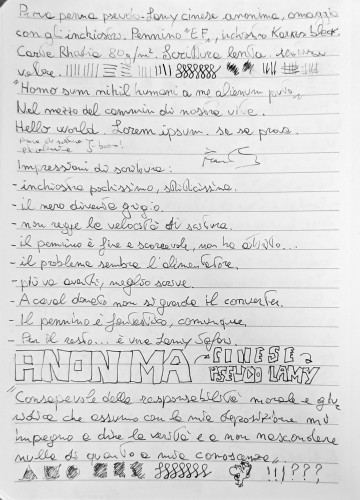 Prova penna pseudo-Lamy cinese anonima, omaggio
con gli inchiostri. Pennino "EF", inchiostro Karkos black.
Carta Rhodia 80g/m². Scrittura lenta. scrittura
veloce.
"Homo sum nihil humani a me alienum puto"
Nel mezzo del cammin di nostra vita.
Hello world. Lorem ipsum. se se prova.
Impressioni di scrittura:
- inchiostra pochissimo, stitichissima.
- il nero diventa grigio.
- non regge la velocità di scrittura.
- il pennino è fine e scorrevole, non ha attrito...
- il problema sembra l'alimentatore.
- più va avanti, meglio scrive.
- A caval donato non si guarda il converter.
- Il pennino è fantastico, comunque.
- Per il resto... è una Lamy Safari.
ANONIMA CINESE
PSEUDO LAMY
"Consapevole della responsabilità morale e giu-
ridica che assumo con la mia deposizione mi
impegno a dire la verità e a non nascondere
nulla di quanto a mia conoscenza"
!!!???